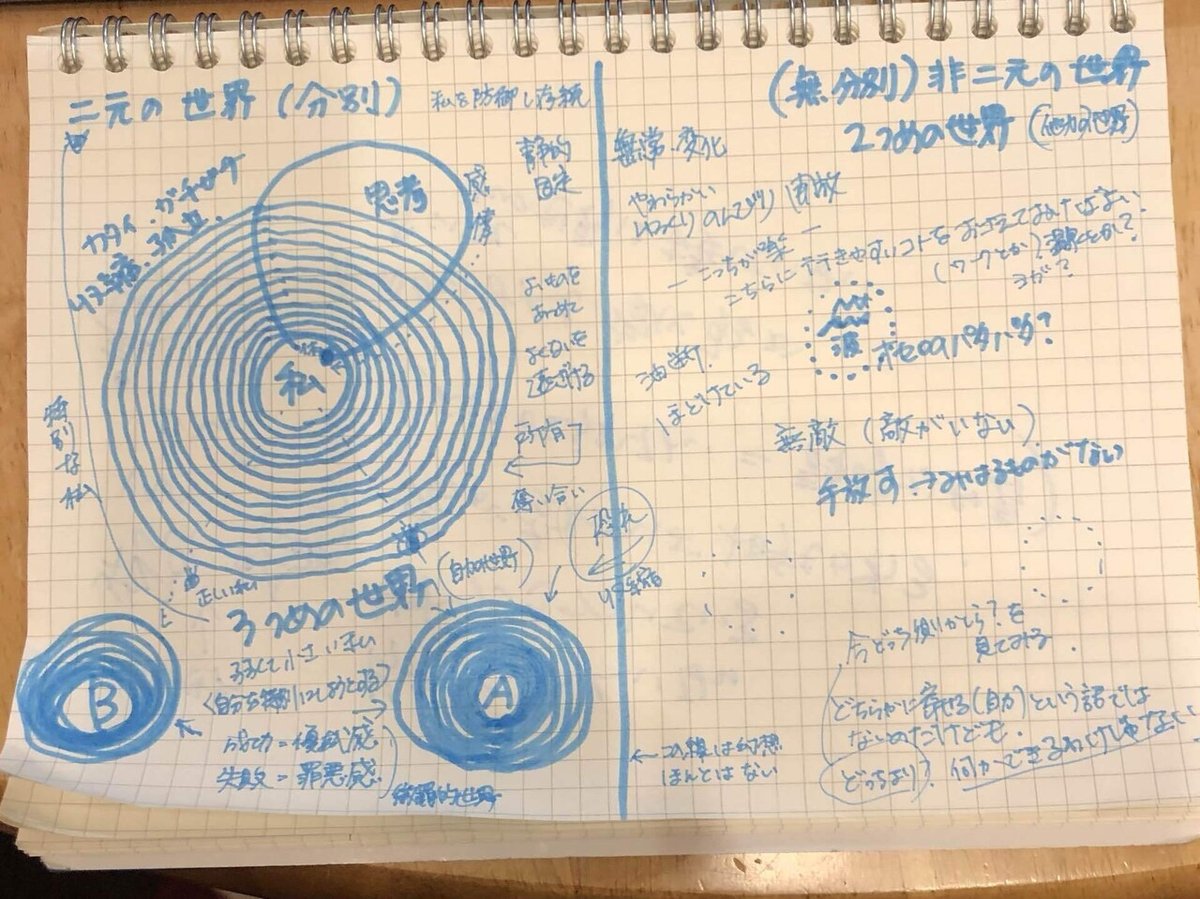 二元の世界(分別)
私を防御し存続
カタイ.ガチガチ
収縮.孤立.
思考
感情
静的
固定
よいものを
あつめて
よくないを
遠ざける
私
所有
奪い合い
特別な私
正しい私
3つめの世界
(自力の世界)
弱くて小さい私
<自分を特別にしようとする>
成功=優越感
失敗=罪悪感
B
A
恐れ
収縮
(無分別)非二元の世界
2つめの世界(他力の世界)
無常 変化
やわらかい
ゆっくり のんびり 直放
ーこっちが楽ー
こちらに行きやすいコトをおさえておけばよい
(ワークとか)
ヨガ?
波
オセロのパタパタ?
油断.
ほどけている
無敵(敵がいない)
手放す.
ものがない
今どっち側かしら?を
見てみる.
どちらかに寄せる(自力)という話では
ないのだけども.
どっちより? 何かできるわけじゃない
←この線は幻想
ほんとはない